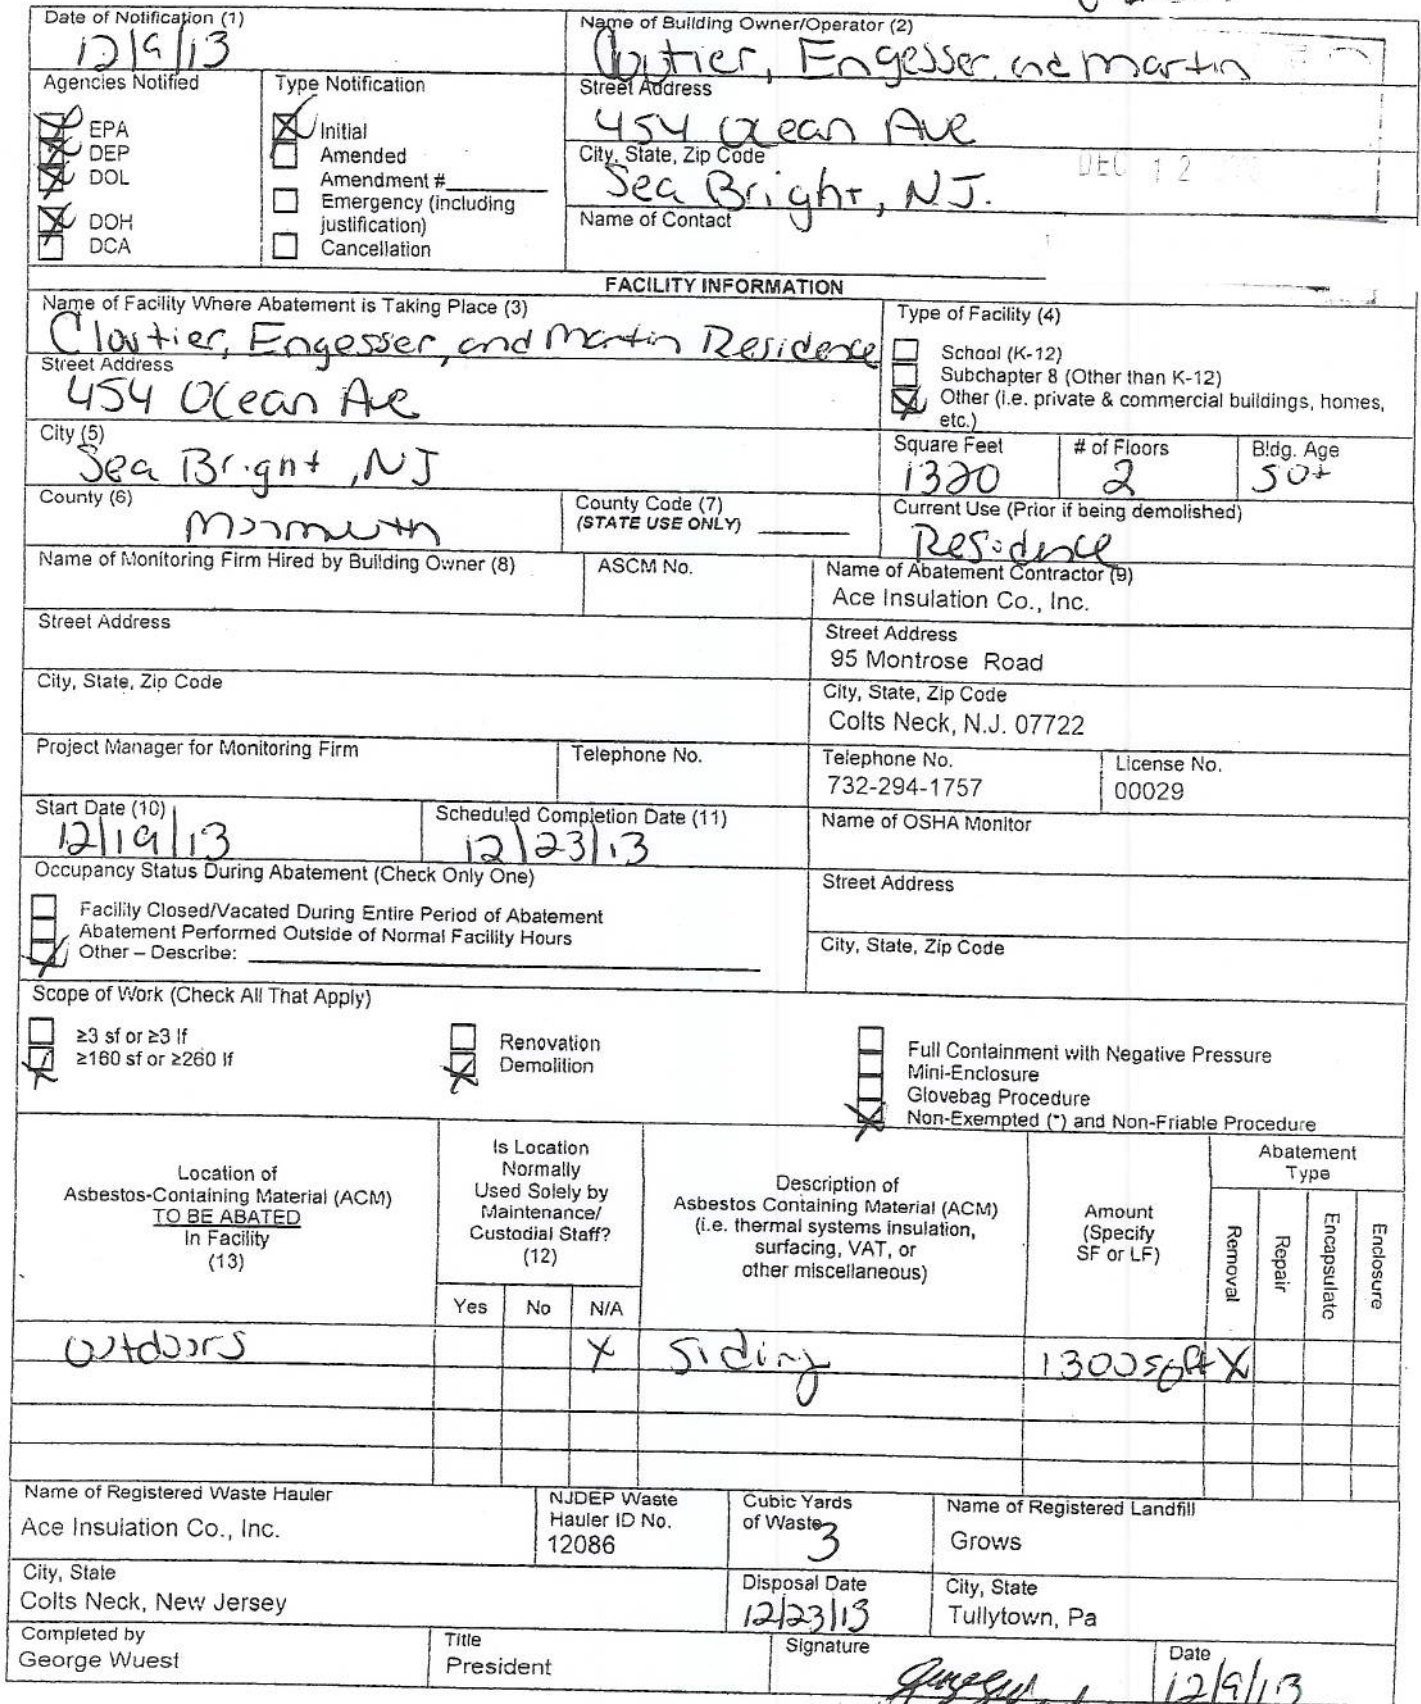 Date of Notification (1)
12/9/13
Name of Building Owner/Operator (2)
Cloutier, Engesser, and Martin
Agencies Notified
EPA
DEP
DOL
DOH
DCA
Type Notification
Initial
Amended
Amendment #
Emergency (including
justification)
Cancellation
Street Address
454 Ocean Ave
City, State, Zip Code
Sea Bright, NJ.
DEC 12
Name of Contact
FACILITY INFORMATION
Name of Facility Where Abatement is Taking Place (3)
Cloutier, Engesser, and Martin Residence
Street Address
454 Ocean Ave
Type of Facility (4)
School (K-12)
Subchapter 8 (Other than K-12)
Other (i.e. private & commercial buildings, homes,
etc.)
City (5)
Sea Bright, NJ
Square Feet
1320
# of Floors
2
Bldg. Age
50+
County (6)
Monmouth
County Code (7)
(STATE USE ONLY)
Current Use (Prior if being demolished)
Residence
Name of Monitoring Firm Hired by Building Owner (8)
ASCM No.
Name of Abatement Contractor (9)
Ace Insulation Co., Inc.
Street Address
Street Address
95 Montrose Road
City, State, Zip Code
City, State, Zip Code
Colts Neck, N.J. 07722
Project Manager for Monitoring Firm
Telephone No.
Telephone No.
732-294-1757
License No.
00029
Start Date (10)
12/19/13
Scheduled Completion Date (11)
12/23/13
Name of OSHA Monitor
Occupancy Status During Abatement (Check Only One)
Facility Closed/Vacated During Entire Period of Abatement
Abatement Performed Outside of Normal Facility Hours
Other – Describe:
Street Address
City, State, Zip Code
Scope of Work (Check All That Apply)
≥3 sf or ≥3 lf
≥160 sf or ≥260 lf
Renovation
Demolition
Full Containment with Negative Pressure
Mini-Enclosure
Glovebag Procedure
Non-Exempted (*) and Non-Friable Procedure
Location of
Asbestos-Containing Material (ACM)
TO BE ABATED
In Facility
(13)
Is Location
Normally
Used Solely by
Maintenance/
Custodial Staff?
(12)
Yes
No
N/A
Description of
Asbestos Containing Material (ACM)
(i.e. thermal systems insulation,
surfacing, VAT, or
other miscellaneous)
Amount
(Specify
SF or LF)
Abatement
Type
Removal
Repair
Encapsulate
Enclosure
Outdoors X Siding 1300 sq ft X
Name of Registered Waste Hauler
Ace Insulation Co., Inc.
NJDEP Waste
Hauler ID No.
12086
Cubic Yards
of Waste
3
Name of Registered Landfill
Grows
City, State
Colts Neck, New Jersey
Disposal Date
12/23/13
City, State
Tullytown, Pa
Completed by
George Wuest
Title
President
Signature
Date
12/9/13